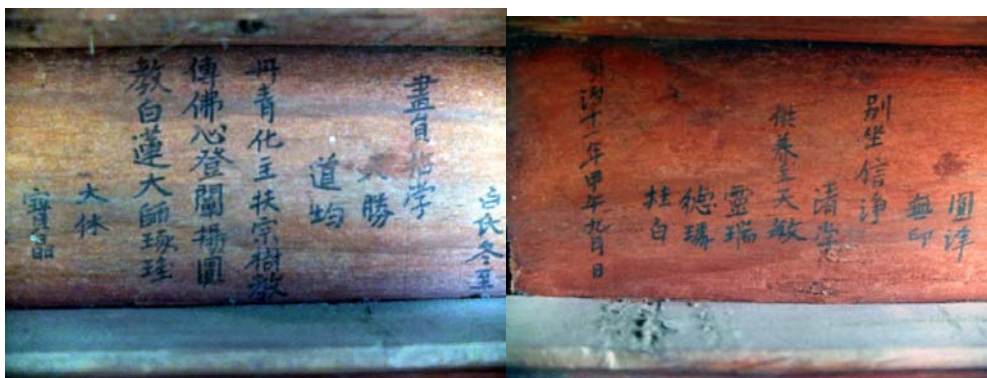 白氏冬至
畫員 学
勝
道均
丹青化主扶宗樹教
傳佛心登闡揚圓
教白蓮大師琢
大休
寶晶
圓澤
無印
別坐信淨
清
供養主天敏
靈瑞
德璘
挂白
順治十一年甲午九月日